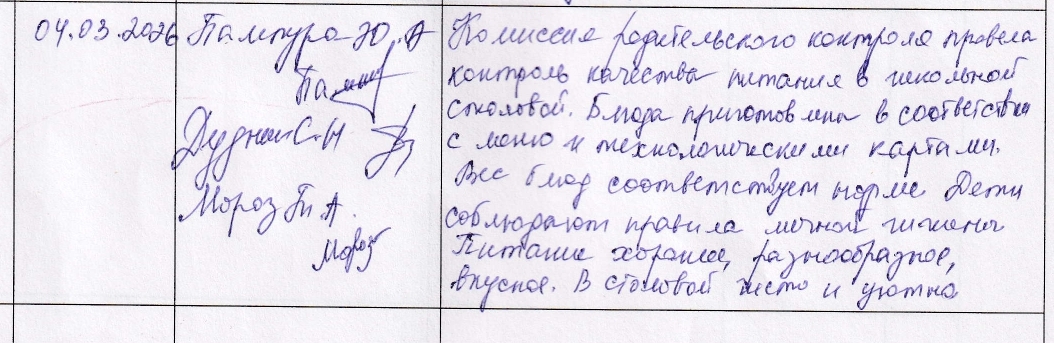 04.03.2026
Пампура Ю.А
Памп
Дудник С.Н
Мороз Т.А.
Мороз
Комиссия родительского контроля провела
контроль качества питания в школьной
столовой. Блюда приготовлены в соответствии
с меню и технологическими картами.
Вес блюд соответствует норме Дети
соблюдают правила личной гигиены
Питание хорошее, разнообразное,
вкусное. В столовой чисто и уютно